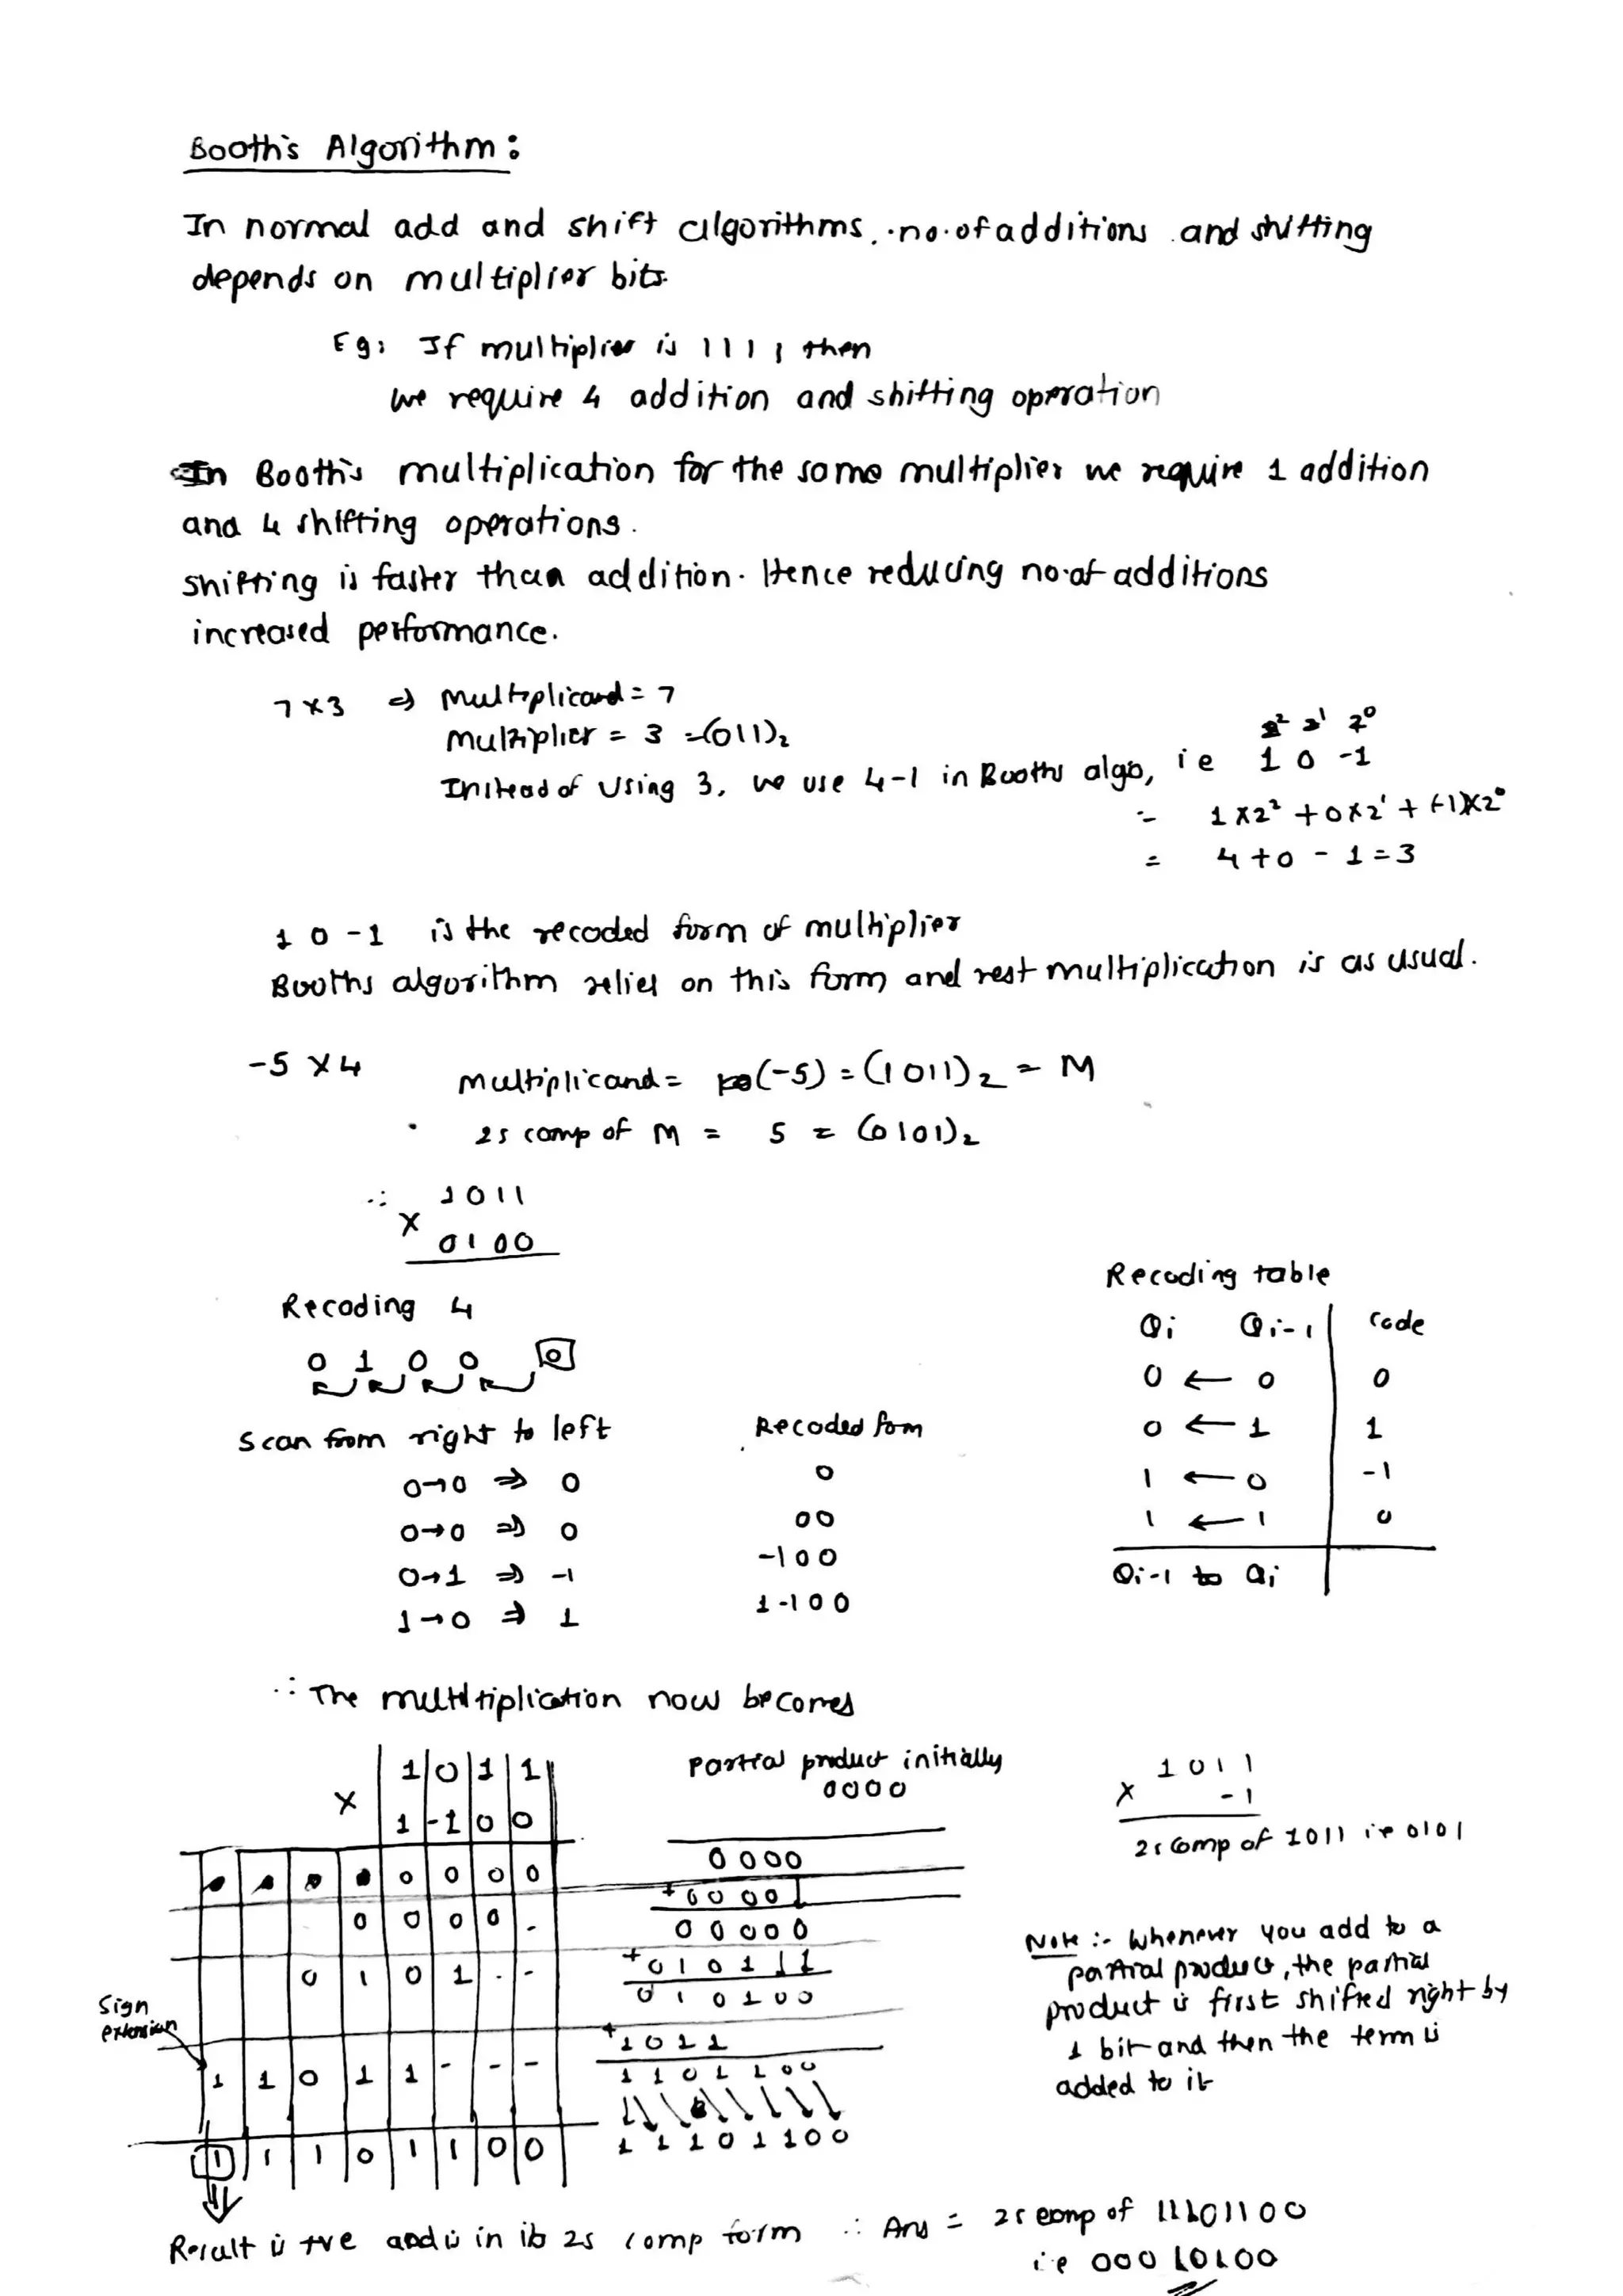 Booth's Algorithm :
In normal add and shift algorithms, no. of additions and shifting
depends on multiplier bits.
Eg: If multiplier is 1111 then
we require 4 addition and shifting operation
In Booth's multiplication for the same multiplier we require 1 addition
and 4 shifting operations.
shifting is faster than addition. Hence reducing no. of additions
increased performance.
7 x 3 => Multiplicand = 7
Multiplier = 3 = (011)₂
Instead of using 3, we use 4-1 in Booths algo, ie
2² 2¹ 2⁰
1 0 -1
= 1 x 2² + 0 x 2¹ + (-1) x 2⁰
= 4 + 0 - 1 = 3
1 0 -1 is the recoded form of multiplier
Booths algorithm relies on this form and rest multiplication is as usual.
-5 x 4 Multiplicand = (-5) = (1011)₂ = M
2s comp of M = 5 = (0101)₂
∴ 1011
x 0100
Recoding 4
0 1 0 0 0
Scan from right to left Recoded form
0→0 => 0 0
0→0 => 0 00
0→1 => -1 -100
1→0 => 1 1-100
Recoding table
Qi Qi-1 code
0 ← 0 0
0 ← 1 1
1 ← 0 -1
1 ← 1 0
Qi-1 to Qi
∴ The multiplication now becomes
1 0 1 1
x 1 -1 0 0
0 0 0 0
0 0 0 0 -
0 1 0 1 - -
Sign
extension
1 1 0 1 1 - - -
1 1 1 0 1 1 0 0
Partial product initially
0000
0000
+0000
00000
+0101
010100
+1011
1101100
11101100
1011
x -1
2s comp of 1011 ie 0101
Note :- Whenever you add to a
partial product, the partial
product is first shifted right by
1 bit and then the term is
added to it
Result is +ve and is in its 2s comp form ∴ Ans = 2s comp of 11101100
i.e 00010100